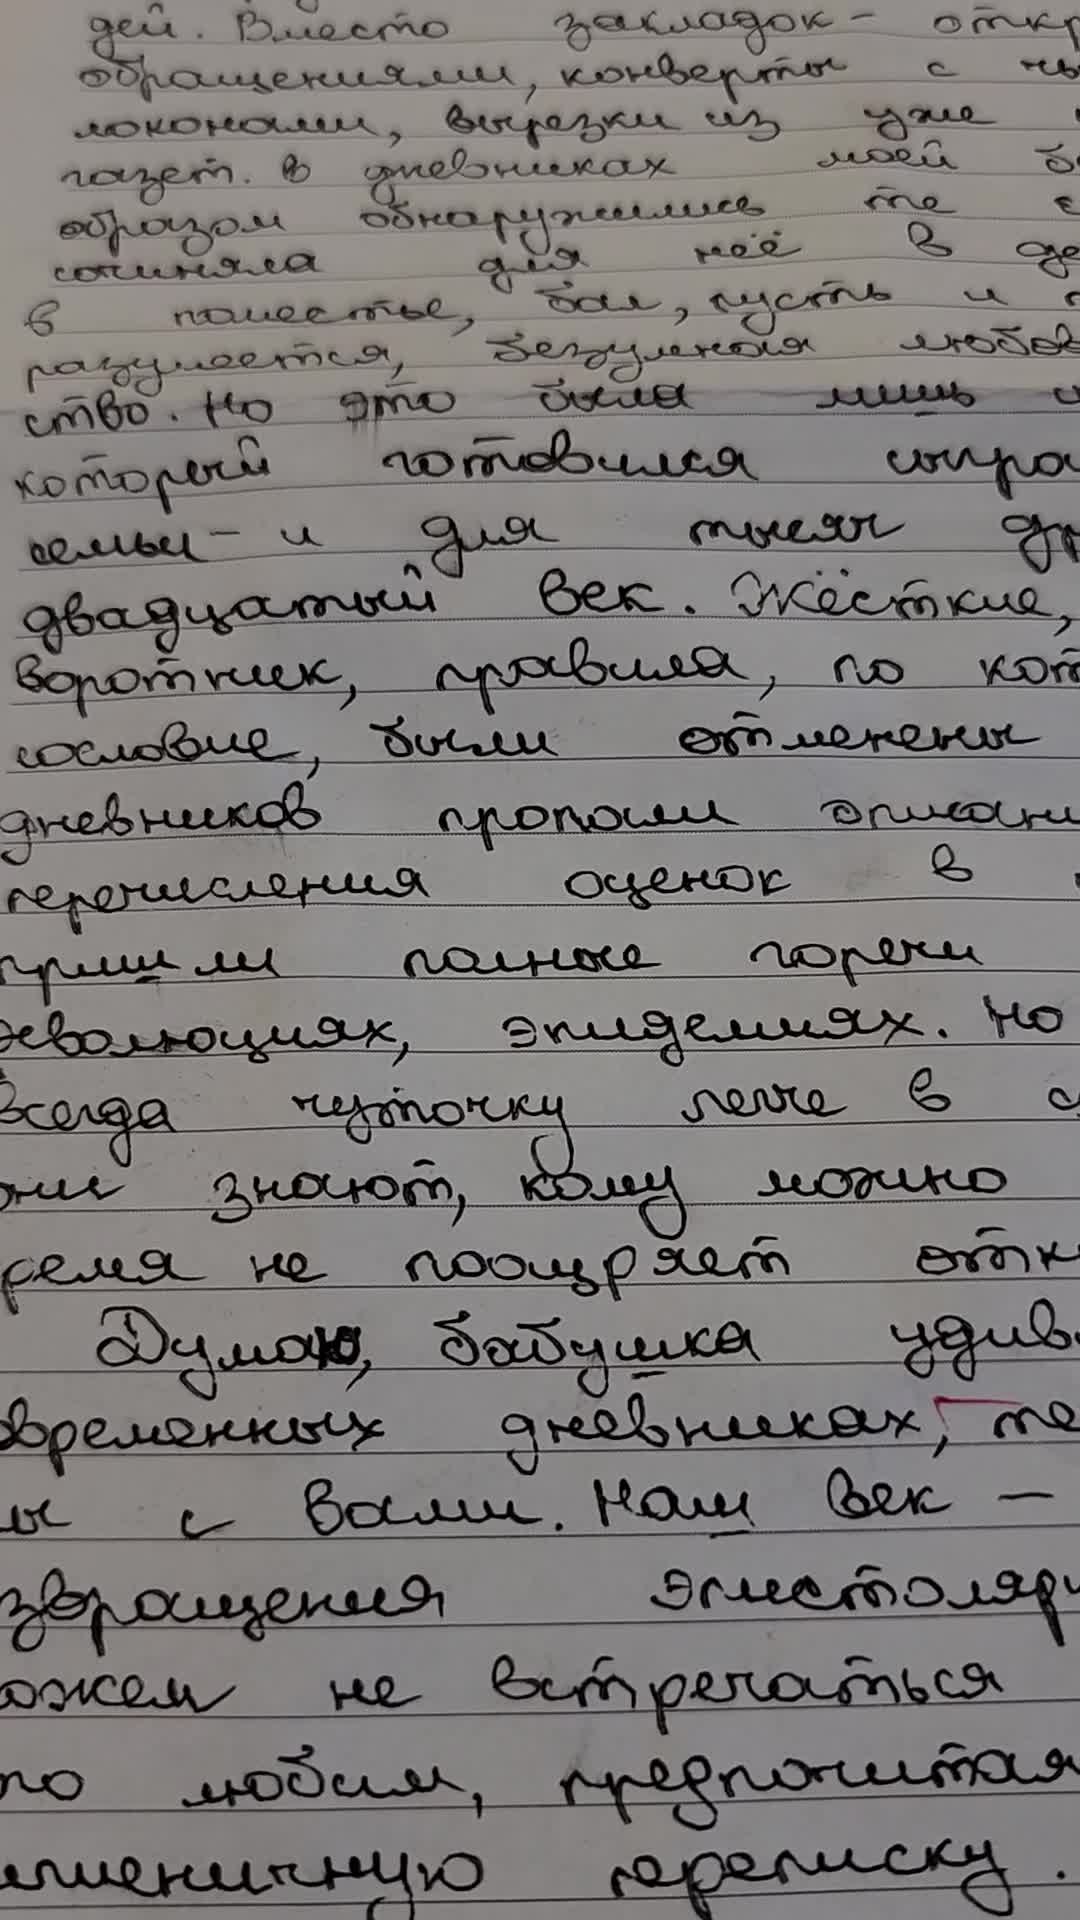 дей. Вместо закладок - откр
обращениями, конверты с чь
локонами, вырезки из уже
газет. В дневниках моей б
образом обнаружились те с
сочиняла для неё в де
в поместье, бал, пусть и
разумеется, безумная любов
ство. Но это была лишь
который готовился сыгра
семьи - и для тысяч др
двадцатый век. Жёсткие,
воротник, правила, по кот
сословие, были отменены
дневников пропали описани
перечисления оценок в
пришли полные горечи
еволюциях, эпидемиях. Но
всегда чуточку легче в с
они знают, кому можно
ремя не поощряет отк
Думаю, бабушка удив
овременных дневниках, те
ы с Вами. Наш век -
звращения эпистоляр
ожем не встречаться
то любим, предпочитая
шеничную переписку.